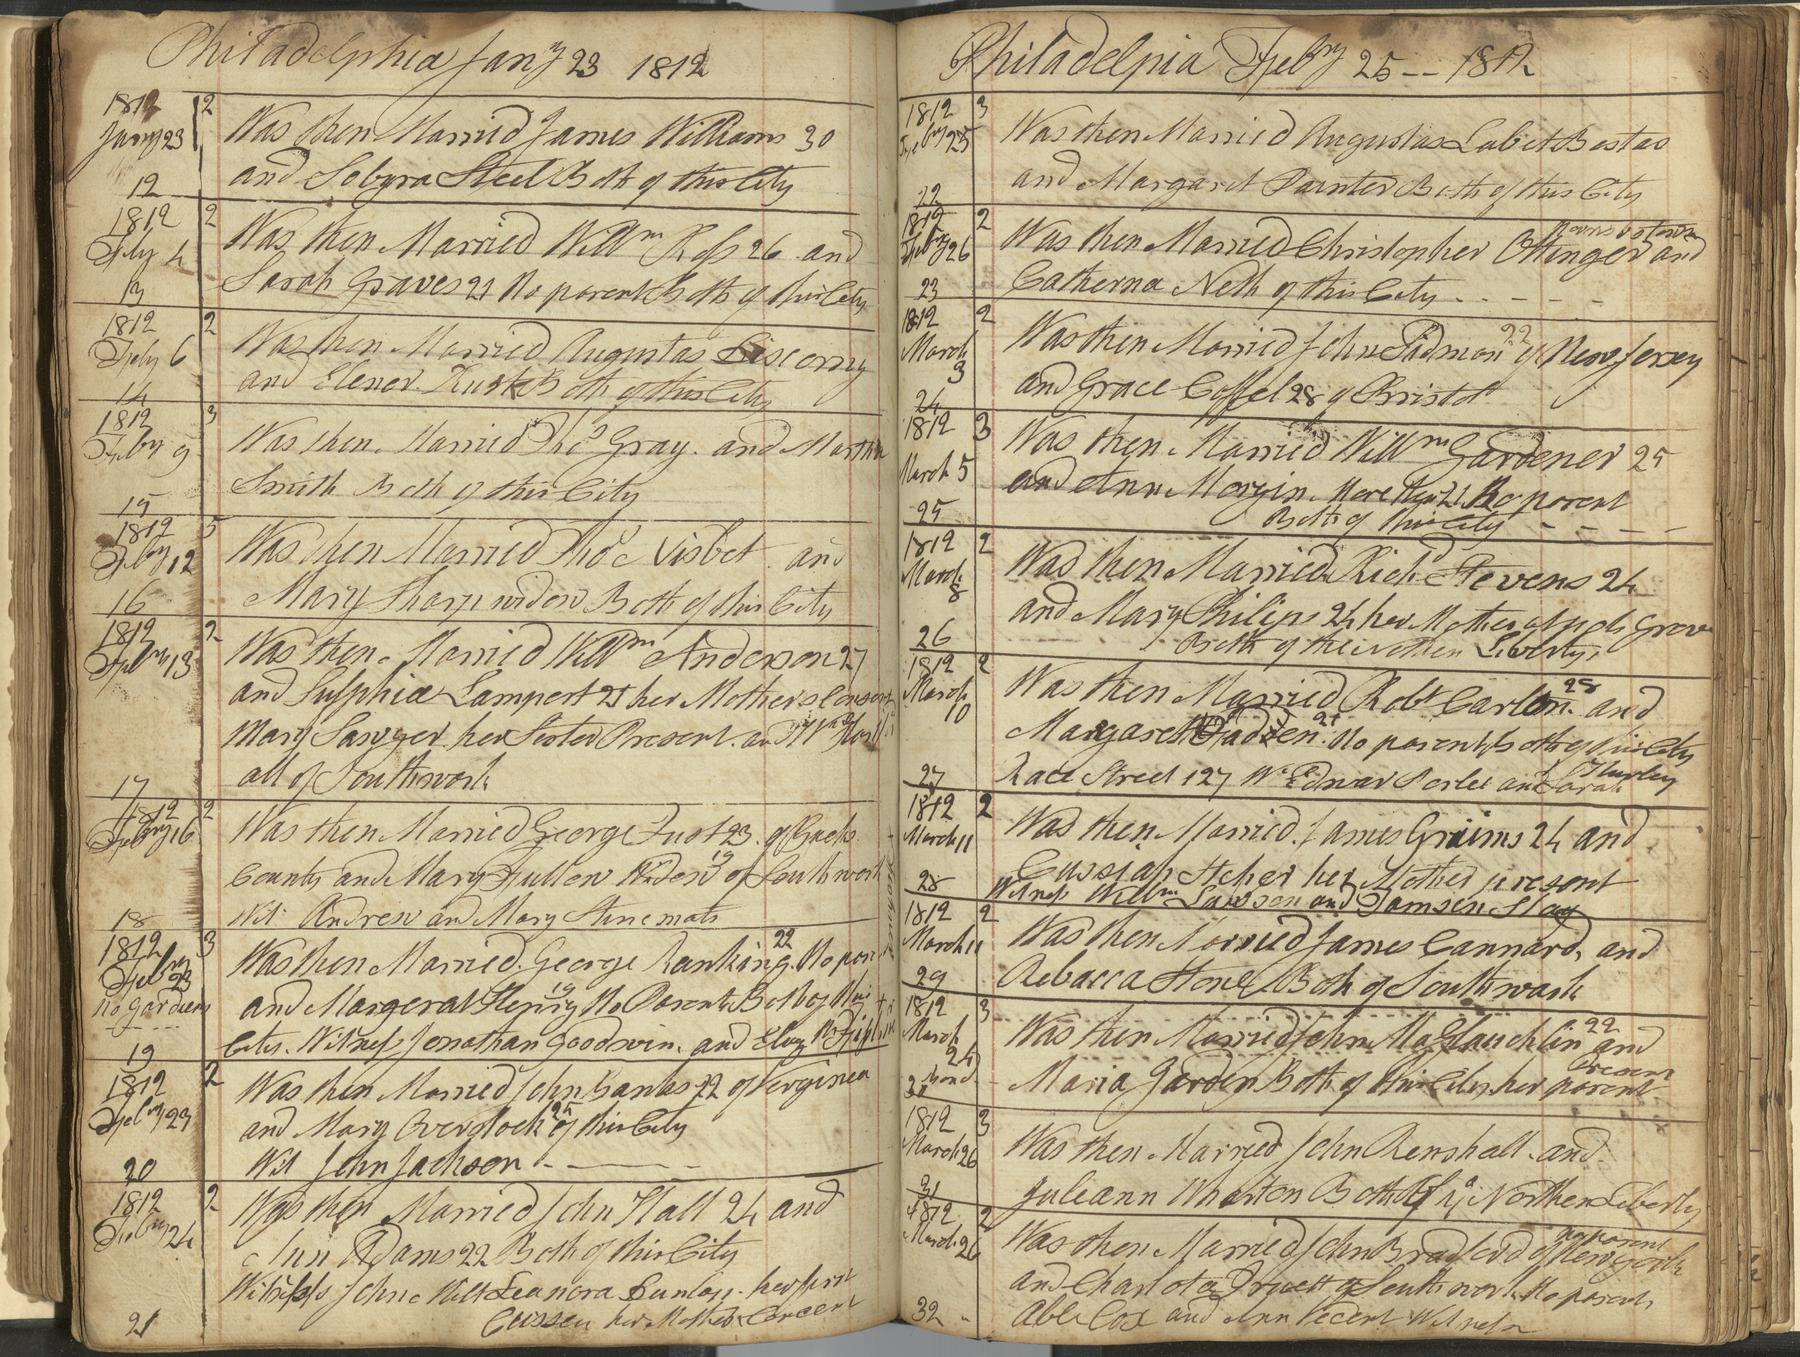 Philadelphia Jany 23 1812
1812 2
Jany 23 Was then Married James Williams 30
and Sobyra Steel Both of this City
12
1812 2
Feby 4 Was then Married Willm Ross 26 and
Sarah Graves 21 No parent Both of this City
13
1812 2
Feby 6 Was then Married Augustas
and Elener Both of this City
14
1812 3
Febry 9 Was then Married Thos Gray and Martha
Smith Both of this City
15
1812 5
Febry 12 Was then Married Thos Nisbet and
Mary Sharp widow Both of this City
16
1812 2
Febry 13 Was then Married Willm Anderson 27
and Sulphia Lampert 21 her Mothers Consent
Mary Sawyer her Sister Present and
all of Southwork
17
1812 2
Febry 16 Was then Married George Fust 23 of Bucks
County and Mary Fullen Widow 19 of Southwork
Wit Andrew and Mary Stinemats
18
1812 3
Febry 23 Was then Married George Ranking 22 No parent
no gardien and Margerat Henry 19 No Parent Both of this
City. Witness Jonathan Goodwin and
19
1812 2
Febry 23 Was then Married John Banks 22 of Verginea
and Mary Overstock 25 of this City
Wit John Jackson
20
1812 2
Febry 24 Was then Married John Hall 24 and
Ann Adams 22 Both of this City
Witness John Leanora Dunlap her first
Cussen her Mother Concent
21
Philadelpia Febry 25 -- 1812
1812 3
Febry 25 Was then Married Augustas Labet Bastas
and Margaret Painter Both of this City
22
1812 2
Febry 26 Was then Married Christopher Ottinger and
Catherna Neth of this City
23
1812 2
March 3 Was then Married John Padmon 22 of New Jersey
and Grace Coffel 28 of Bristol
24
1812 3
March 5 Was then Married Willm Gardener 25
and Ann Morgin More than 21 No parent
Both of this City
25
1812 2
March 8 Was then Married Richd Stevens 24
and Mary Philips 24 her Mother
Both of the Nothen Liberty
26
1812 2
March 10 Was then Married Robt Carlton 28 and
Margaret 21 No parent Both of this City
Race Street 127 Wi Edwar Perlee and Sarah Hurley
27
1812 2
March 11 Was then Married James Graims 24 and
Cussiah her Mother present
Witness Willm Lawson and Tamsen Slay
28
1812 2
March 11 Was then Married James Cannard and
Rebacca Stone Both of Southwark
29
1812 3
March 24 Was then Married John MaGlauchlin 22 and
Maria Garden Both of this City her parent Present
30
1812 3
March 26 Was then Married John Renshall and
Juleann Wharton Both of the Northen Liberty
31
1812 2
March 26 Was then Married John Bradford of Newyork no parent
and Charlota Pruett of Southwork No parent
Able Cox and Ann Witness
32